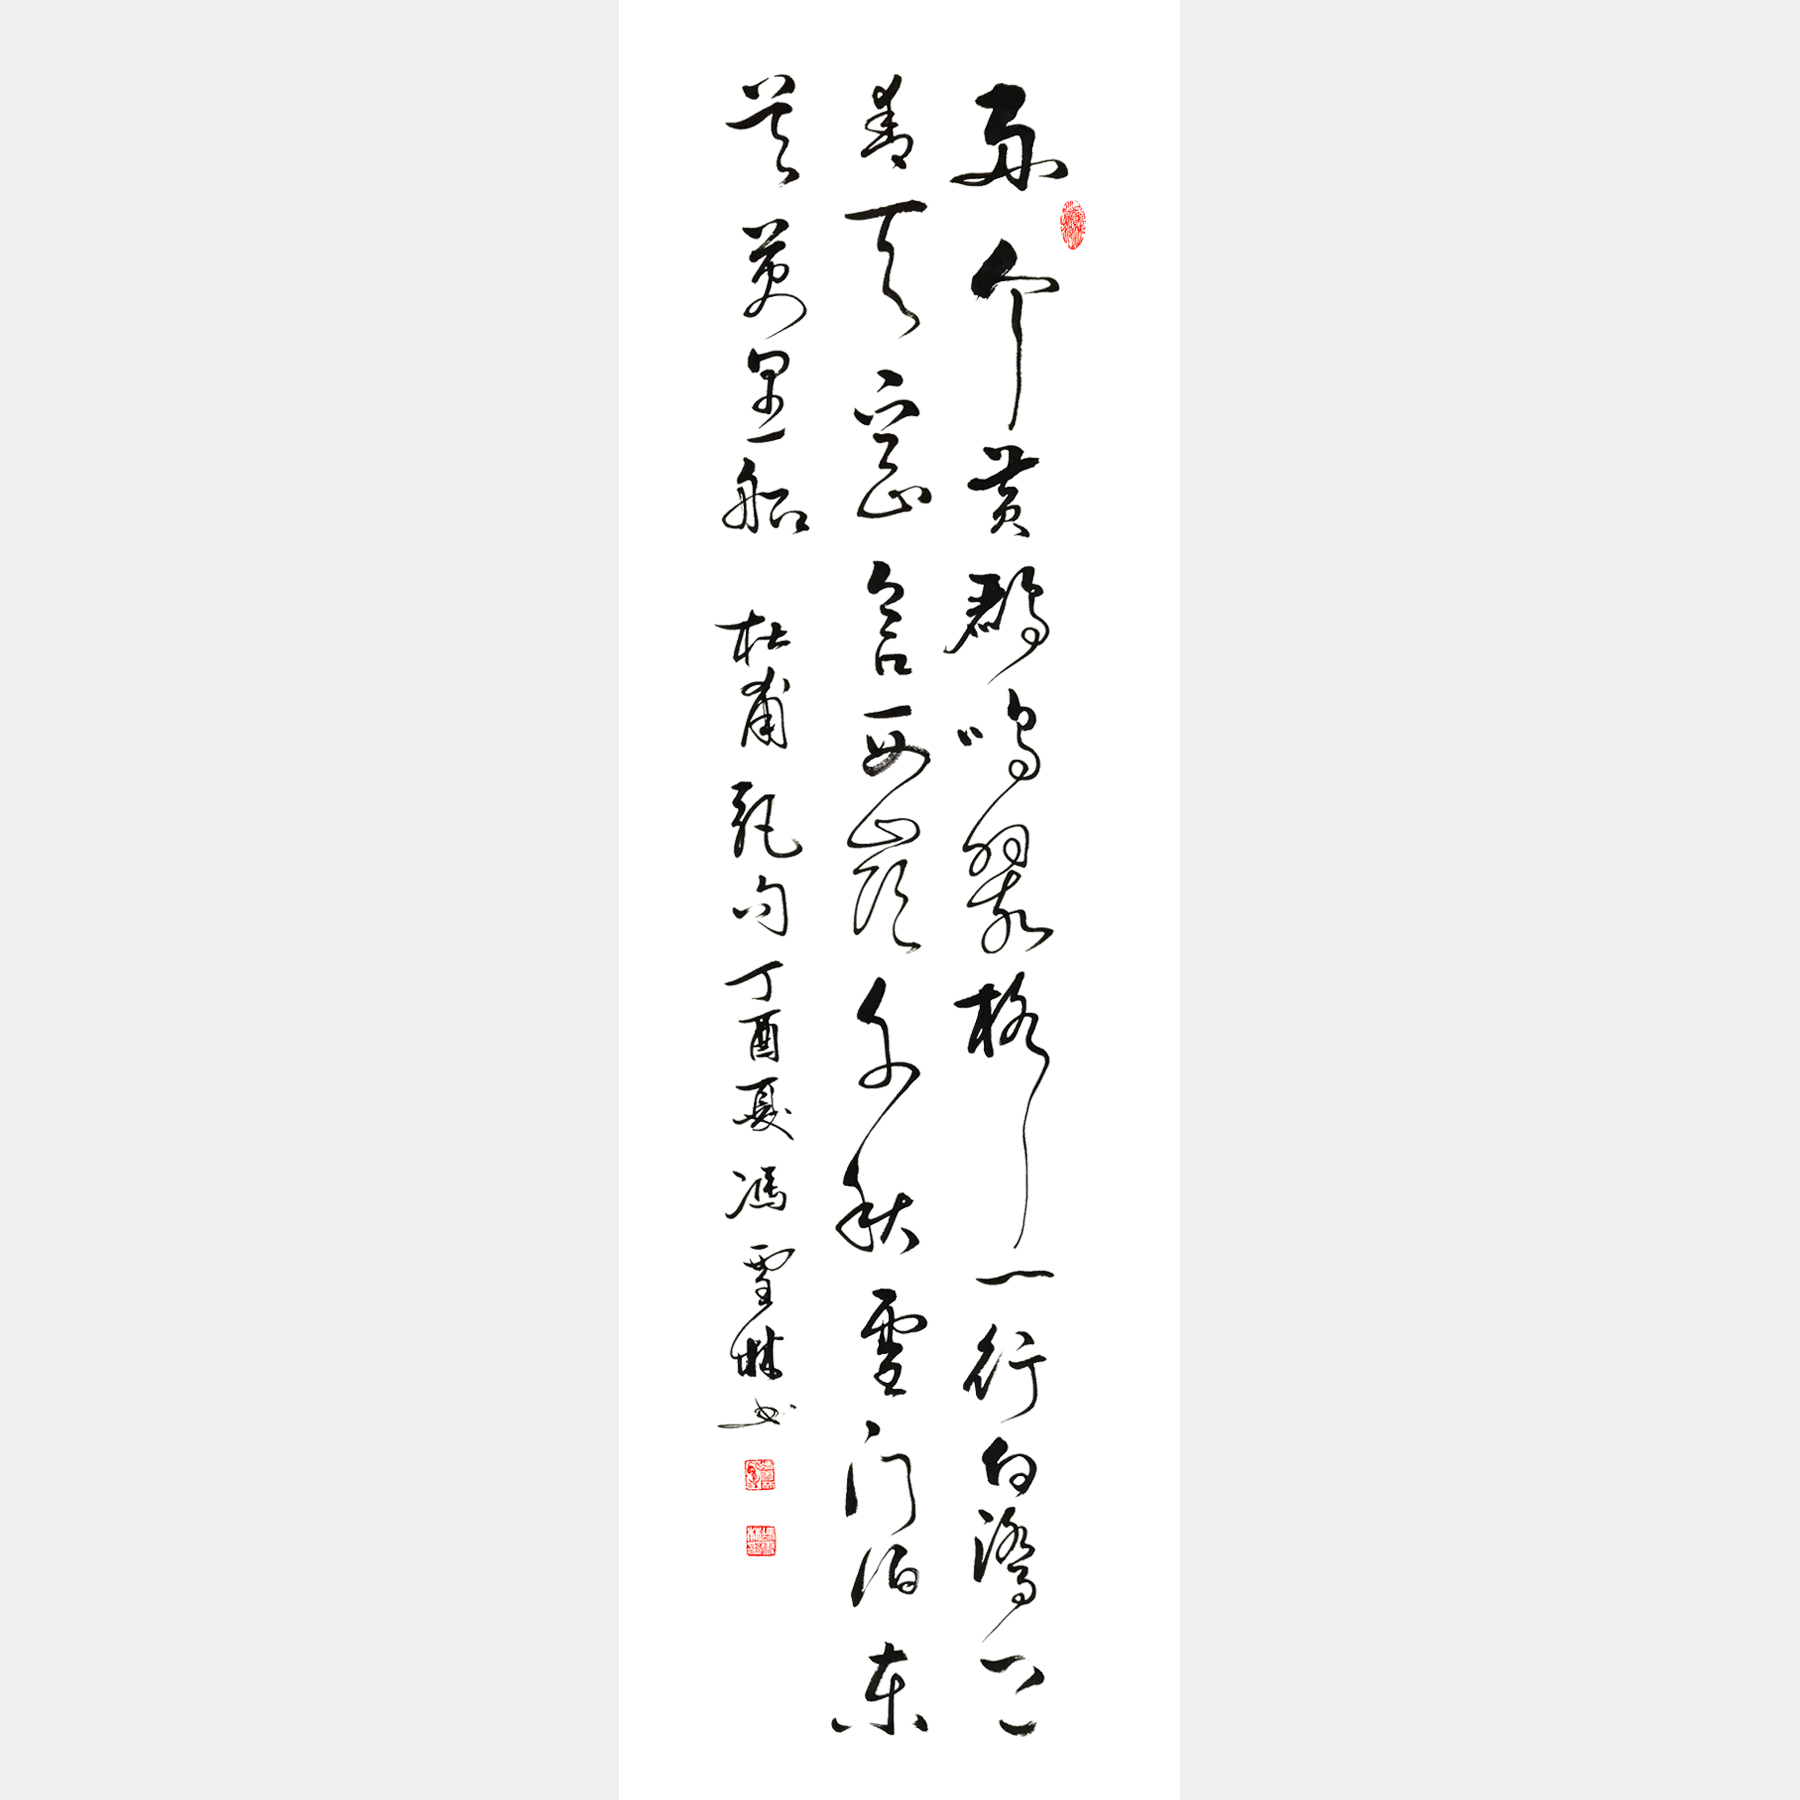 两个黄鹂鸣翠柳一行白鹭上
青天窗含西岭千秋雪门泊东
吴万里船 杜甫绝句 丁酉夏 冯雪林书